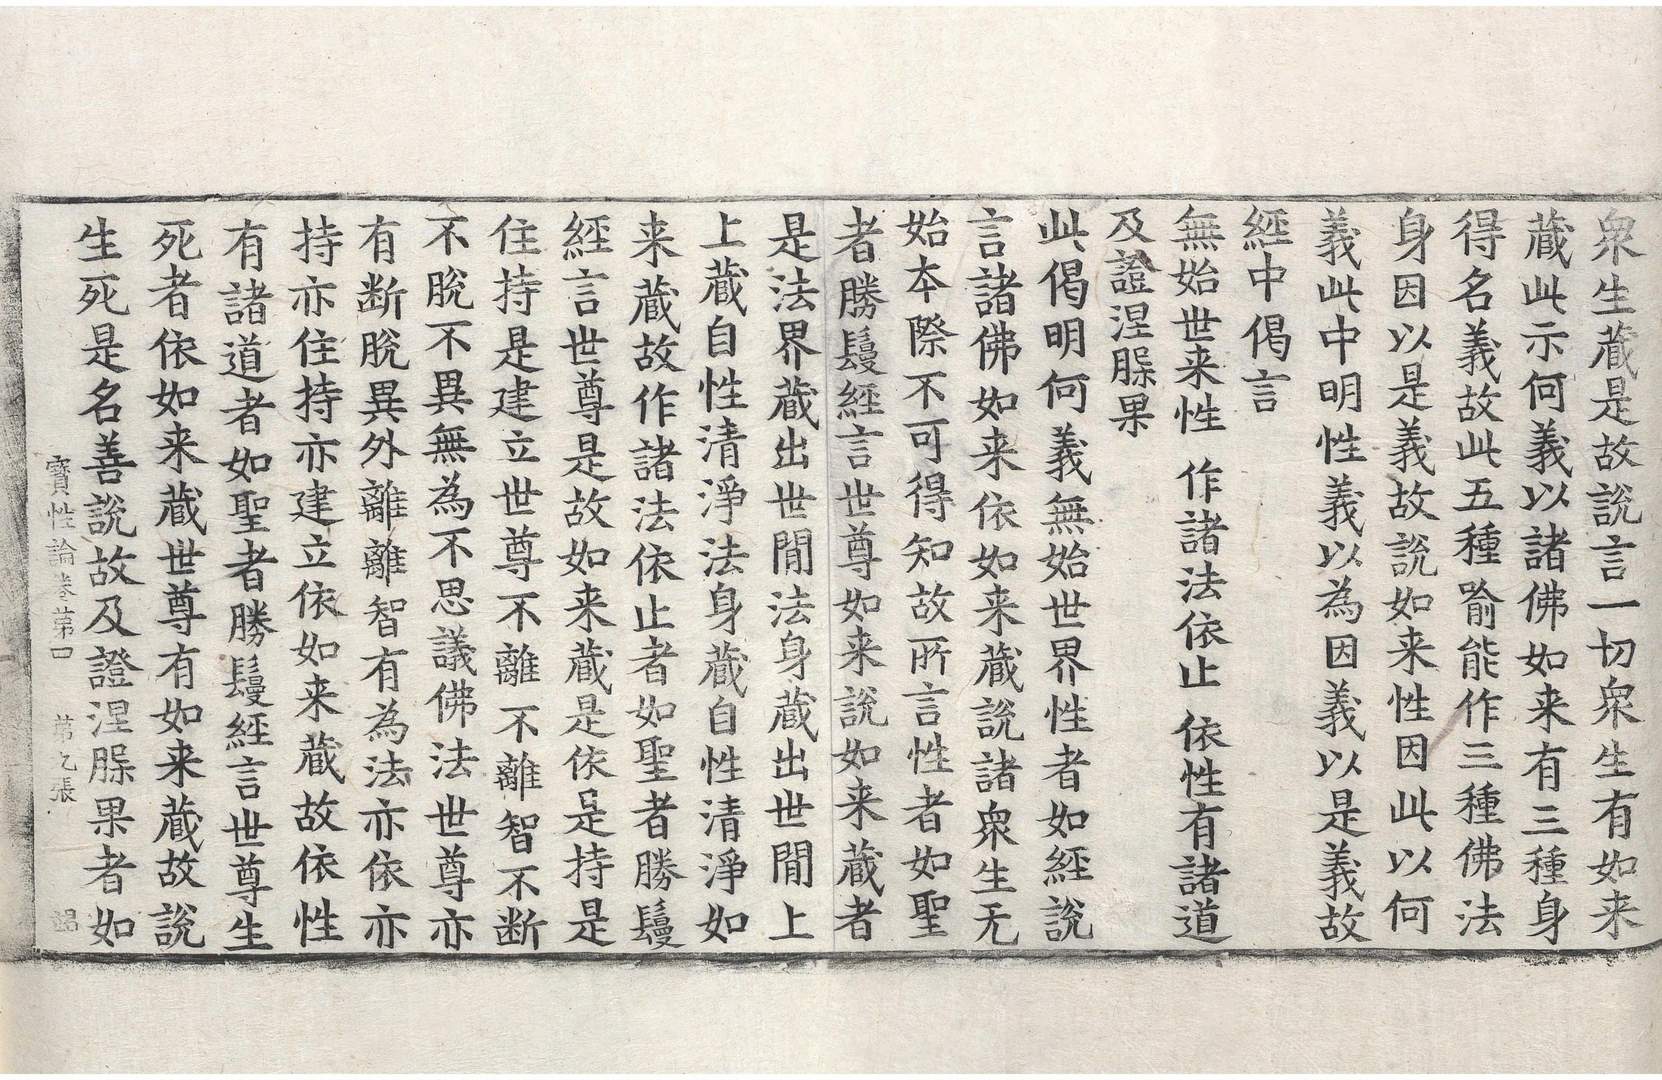 衆生蔵是故説言一切衆生有如来
蔵此示何義以諸佛如来有三種身
得名義故此五種喻能作三種佛法
身因以是義故説如来性因此以何
義此中明性義以為因義以是義故
經中偈言
無始世来性 作諸法依止 依性有諸道
及證涅槃果
此偈明何義無始世界性者如經説
言諸佛如来依如来蔵説諸衆生无
始本際不可得知故所言性者如聖
者勝鬘經言世尊如来説如来蔵者
是法界蔵出世間法身蔵出世間上
上蔵自性清淨法身蔵自性清淨如
来蔵故作諸法依止者如聖者勝鬘
經言世尊是故如来蔵是依是持是
住持是建立世尊不離不離智不断
不脫不異無為不思議佛法世尊亦
有断脫異外離離智有為法亦依亦
持亦住持亦建立依如来蔵故依性
有諸道者如聖者勝鬘經言世尊生
死者依如来蔵世尊有如来蔵故説
生死是名善說故及證涅槃果者如
寶性論卷苐四 苐九張